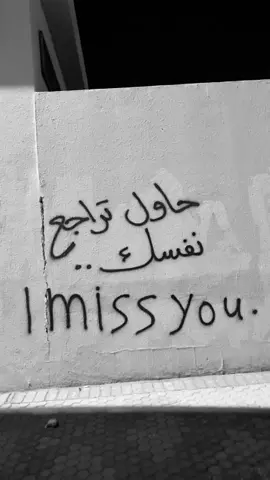 حاول تراجع
نفسك..
I miss you.